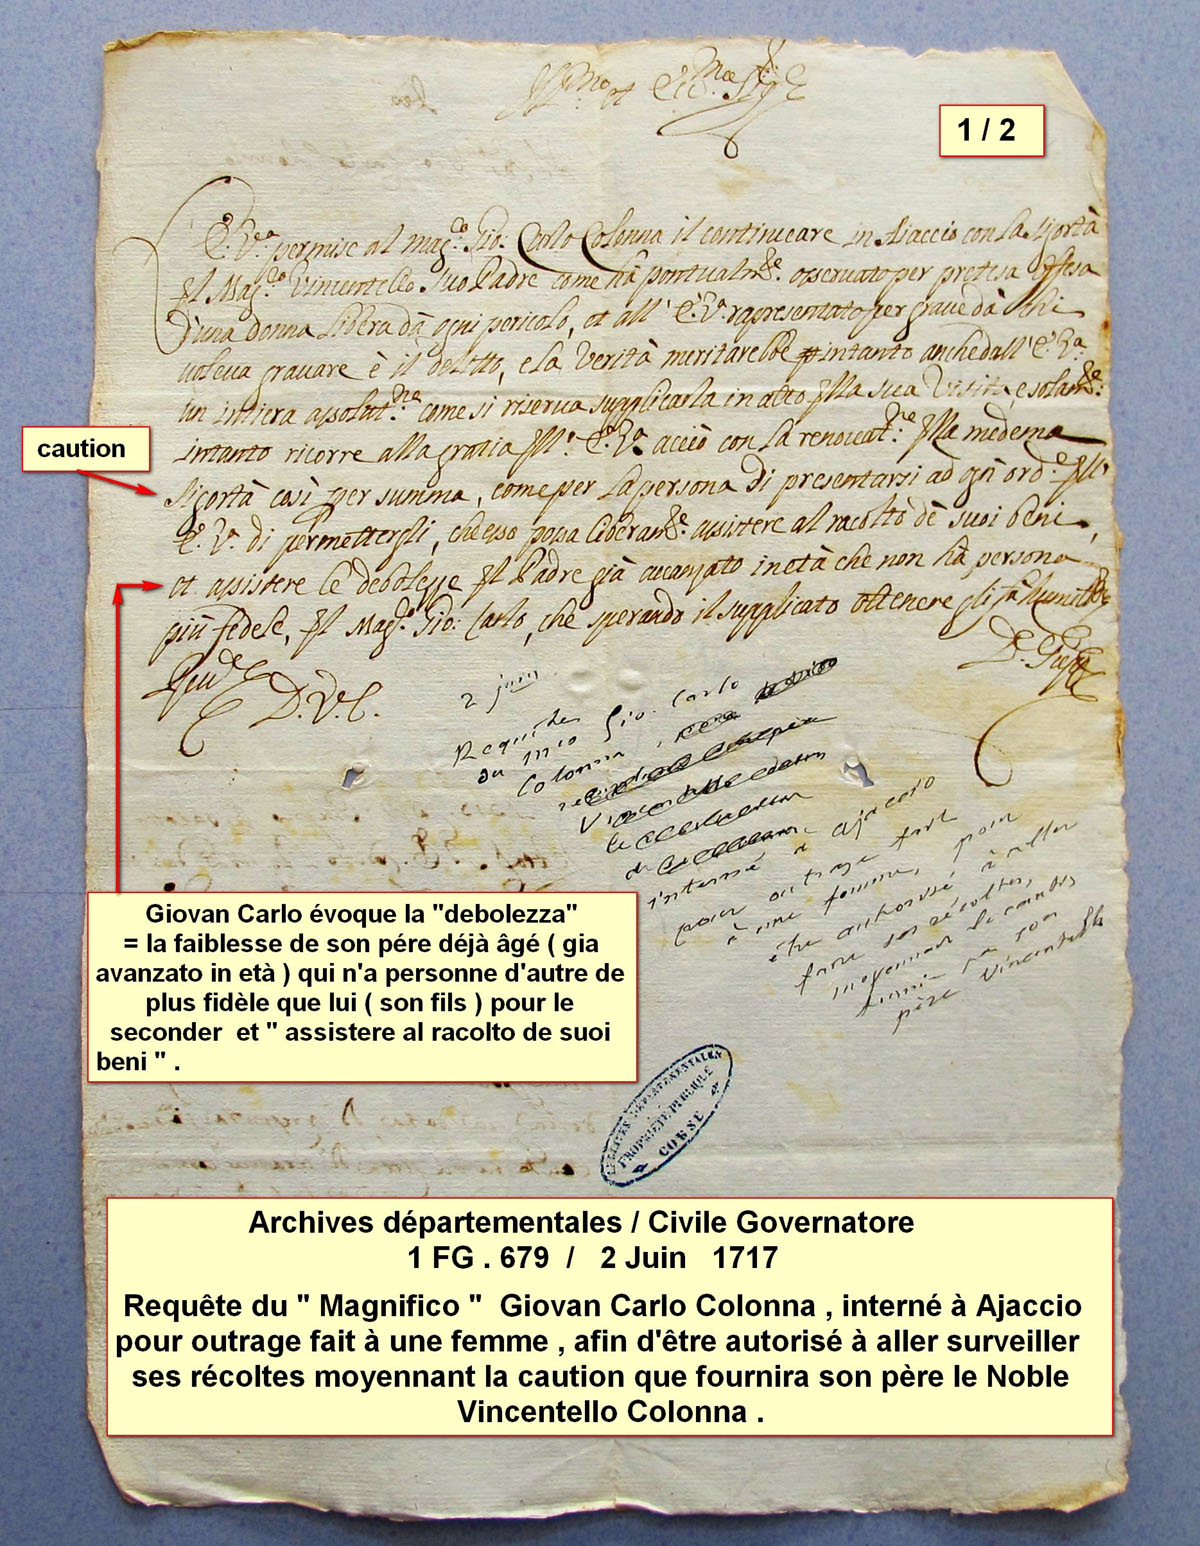 Ill.mo et Ecc.mo Sig.re
1 / 2
E. V.a permise al mag.co Gio: Carlo Colonna il continuare in Aiaccio con la sigortà
del Mag.co Vincentello suo Padre come hà pontualm.te osservato per pretesa offesa
d'una donna libera dà ogni pericolo, et all' E. V.a rapresentato per grave dà chi
voleva gravare è il delitto, e la verità meritarebbe intanto anche dall' E. V.a
un intiera assolut.ne come si riserva supplicarla in atto della sua visita, e solam.te
intanto ricorre alla gratia dell' E. V.a acciò con la renovat.ne della medema
caution
sigortà così per summa, come per la persona di presentarsi ad ogni ord.e dell'
E. V. di permettergli, che esso possa liberam.te assistere al racolto de suoi beni,
et assistere le debolezze del Padre già avanzato in età che non hà persona
più fedele, del Mag.co Gio: Carlo, che sperando il supplicato ottenere gli fà humiliss.e
D. V. E.
2 juin
Requête
du Mco Gio. Carlo
Colonna,
interné à Ajaccio
pour outrage fait
à une femme, pour
être authorisé à aller
faire ses récoltes,
moyennant la caution
fournie par son
père Vincentello
Giovan Carlo évoque la "debolezza"
= la faiblesse de son pére déjà âgé ( gia
avanzato in età ) qui n'a personne d'autre de
plus fidèle que lui ( son fils ) pour le
seconder et " assistere al racolto de suoi
beni " .
ARCHIVES DÉPARTEMENTALES
PROPRIÉTÉ PUBLIQUE
CORSE
Archives départementales / Civile Governatore
1 FG . 679 / 2 Juin 1717
Requête du " Magnifico " Giovan Carlo Colonna , interné à Ajaccio
pour outrage fait à une femme , afin d'être autorisé à aller surveiller
ses récoltes moyennant la caution que fournira son père le Noble
Vincentello Colonna .